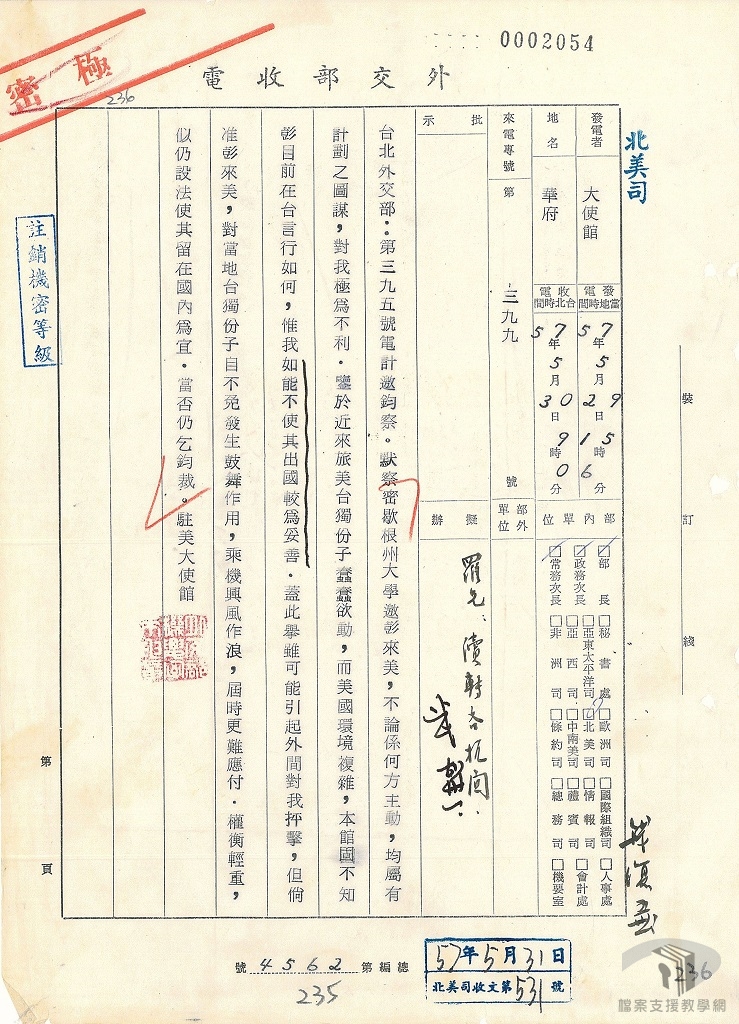 0002054
極密
236
外交部收電
北美司
發電者 大使館
發電 當地時間 57年5月29日15時6分
地名 華府
收電 台北時間 57年5月30日9時0分
來電專號 第 三九九 號
批示
部內單位
☑部長 □秘書處 □歐洲司 □國際組織司 □人事處
☑政務次長 □亞東太平洋司 □北美司 □情報司 □會計處
☑常務次長 □亞西司 □中南美司 □禮賓司 □機要室
□非洲司 □條約司 □總務司
部外單位
擬辦
台北外交部：第三九五號電計邀鈞察。默察密歇根州大學邀彭來美，不論係何方主動，均屬有
計劃之圖謀，對我極為不利．鑒於近來旅美台獨份子蠢蠢欲動，而美國環境複雜，本館固不知
彭目前在台言行如何，惟我如能不使其出國較為妥善．蓋此舉雖可能引起外間對我抨擊，但倘
准彭來美，對當地台獨份子自不免發生鼓舞作用，乘機興風作浪，屆時更難應付．權衡輕重，
似仍設法使其留在國內為宜．當否仍乞鈞裁。駐美大使館
註銷機密等級
裝
訂
綫
第 頁
總編第 4562 號
235
57年5月31日
北美司收文第531號
236
檔案支援教學網